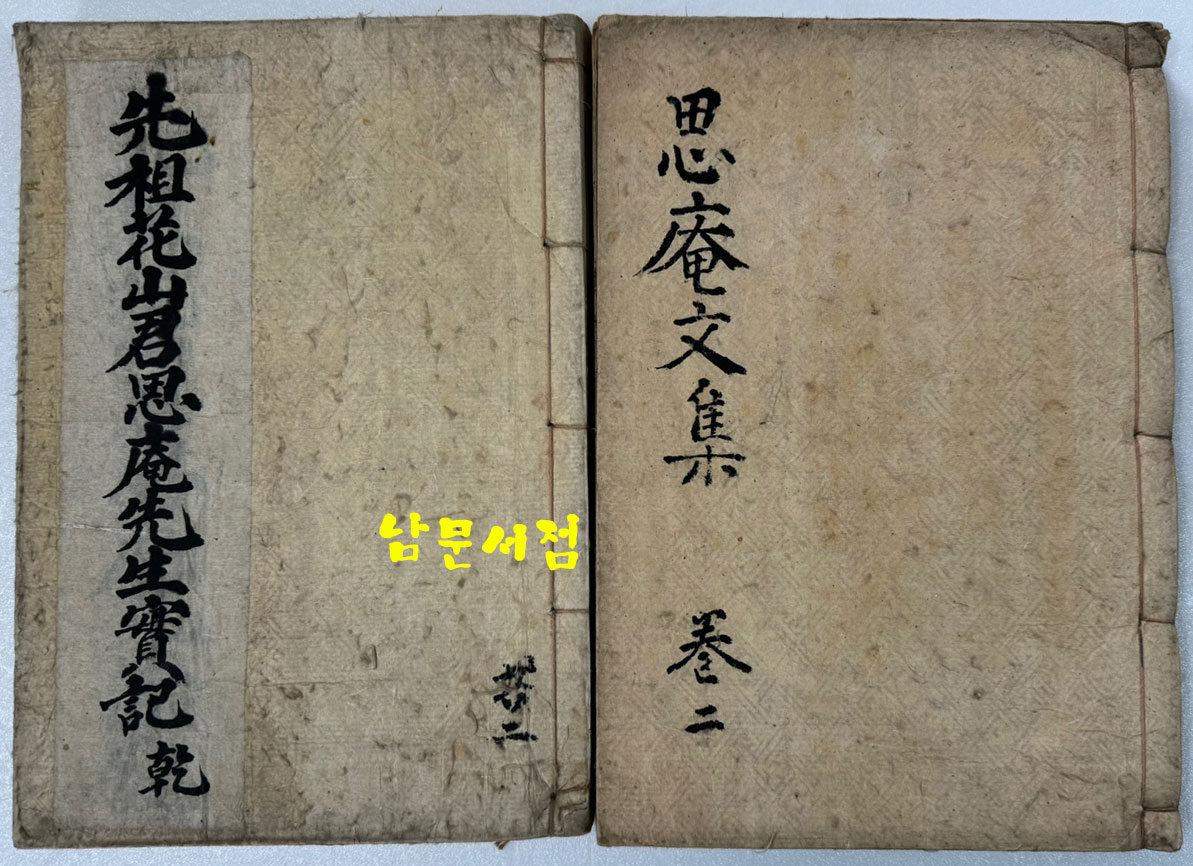 先祖花山君思庵先生實記 乾
共二
남문서점
思庵文集 卷二